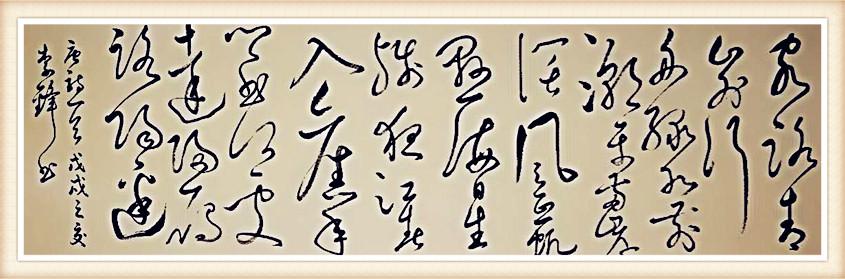 客路青
山外行
舟绿水前
潮平两岸
阔风正一帆
悬海日生
残夜江春
入旧年
乡书何处
达归雁
洛阳边
唐诗一首 戊戌之交
李锋书